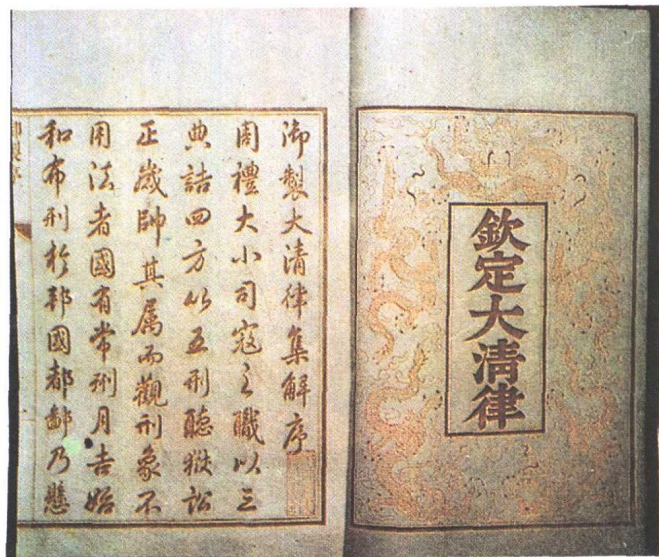 欽定大清律
御製大清律集解序
周禮大小司寇之職以三
典詰四方以五刑聽獄訟
正歲帥其屬而觀刑象不
用法者國有常刑月吉始
和布刑於邦國都鄙乃懸